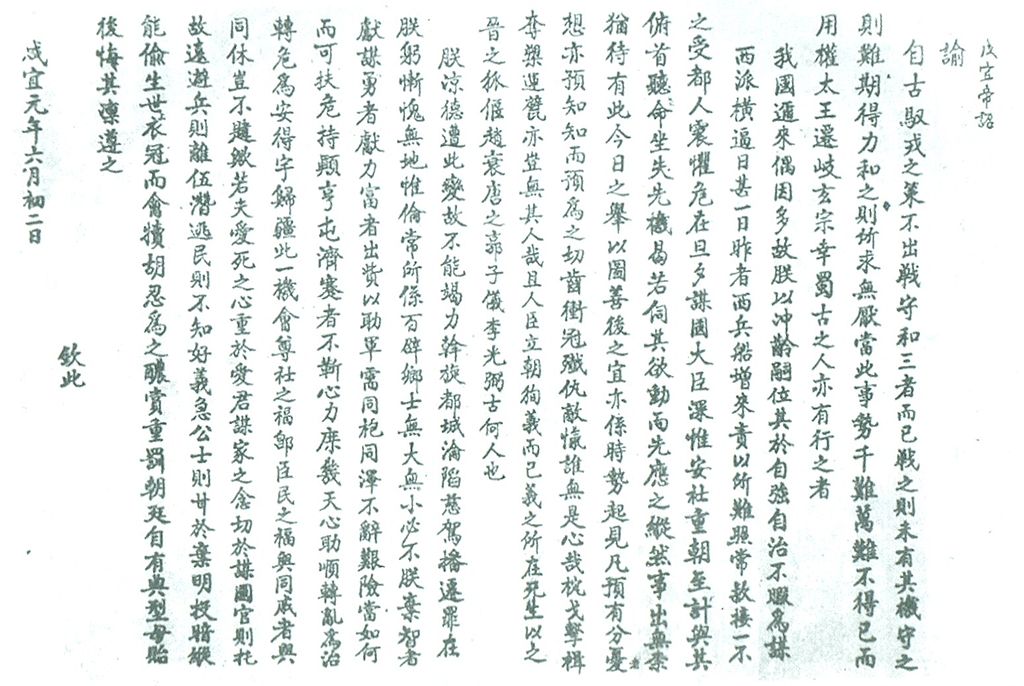 咸宜帝詔
諭
自古馭戎之策不出戰守和三者而已戰之則未有其機守之
則難期得力和之則所求無厭當此事勢千難萬難不得已而
用權太王遷岐玄宗幸蜀古之人亦有行之者
我國邇來偶因多故朕以冲齡嗣位其於自強自治不暇為謀
西派橫逼日甚一日昨者西兵船增來責以所難照常款接一不
之受都人震懼危在旦夕謀國大臣深惟安社重朝至計與其
俯首聽命坐失先機曷若伺其欲動而先應之縱然事出無柰
猶待有此今日之舉以圖善後之宜亦係時勢起見凡預有分憂
想亦預知知而預為之切齒衝冠殲仇敵愾誰無是心哉枕戈擊楫
奪槊運甓亦豈無其人哉且人臣立朝狥義而已義之所在死生以之
晉之狐偃趙衰唐之郭子儀李光弼古何人也
朕凉德遭此變故不能竭力斡旋都城淪䧟慈駕播遷罪在
朕躬慚愧無地惟倫常所係百辟鄉士無大無小必不朕棄智者
獻謀勇者獻力富者出貲以助軍需同袍同澤不辭艱險當如何
而可扶危持顛亨屯濟蹇者不靳心力庶幾天心助順轉亂為治
轉危為安得宇歸疆此一機會尊社之福即臣民之福與同戚者與
同休豈不韙歟若夫愛死之心重於愛君謀家之念切於謀國官則托
故遠遊兵則離伍潛逃民則不知好義急公士則甘於棄明投暗縱
能偷生世衣冠而禽犢胡忍為之醲賞重罰朝廷自有典型毋貽
後悔其凜遵之
欽此
咸宜元年六月初二日